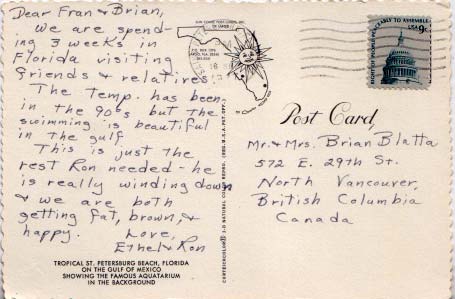 Dear Fran & Brian,
We are spend-
ing 3 weeks in
Florida visiting
friends & relatives.
The temp. has been
in the 90's but the
swimming is beautiful
in the gulf.
This is just the
rest Ron needed - he
is really winding down
& we are both
getting fat, brown, &
happy.
Love,
Ethel & Ron
TROPICAL ST. PETERSBURG BEACH, FLORIDA
ON THE GULF OF MEXICO
SHOWING THE FAMOUS AQUATARIUM
IN THE BACKGROUND
USA 9c
Post Card
Mr. & Mrs. Brian Blatta
572 E. 29th St.
North Vancouver,
British Columbia
Canada